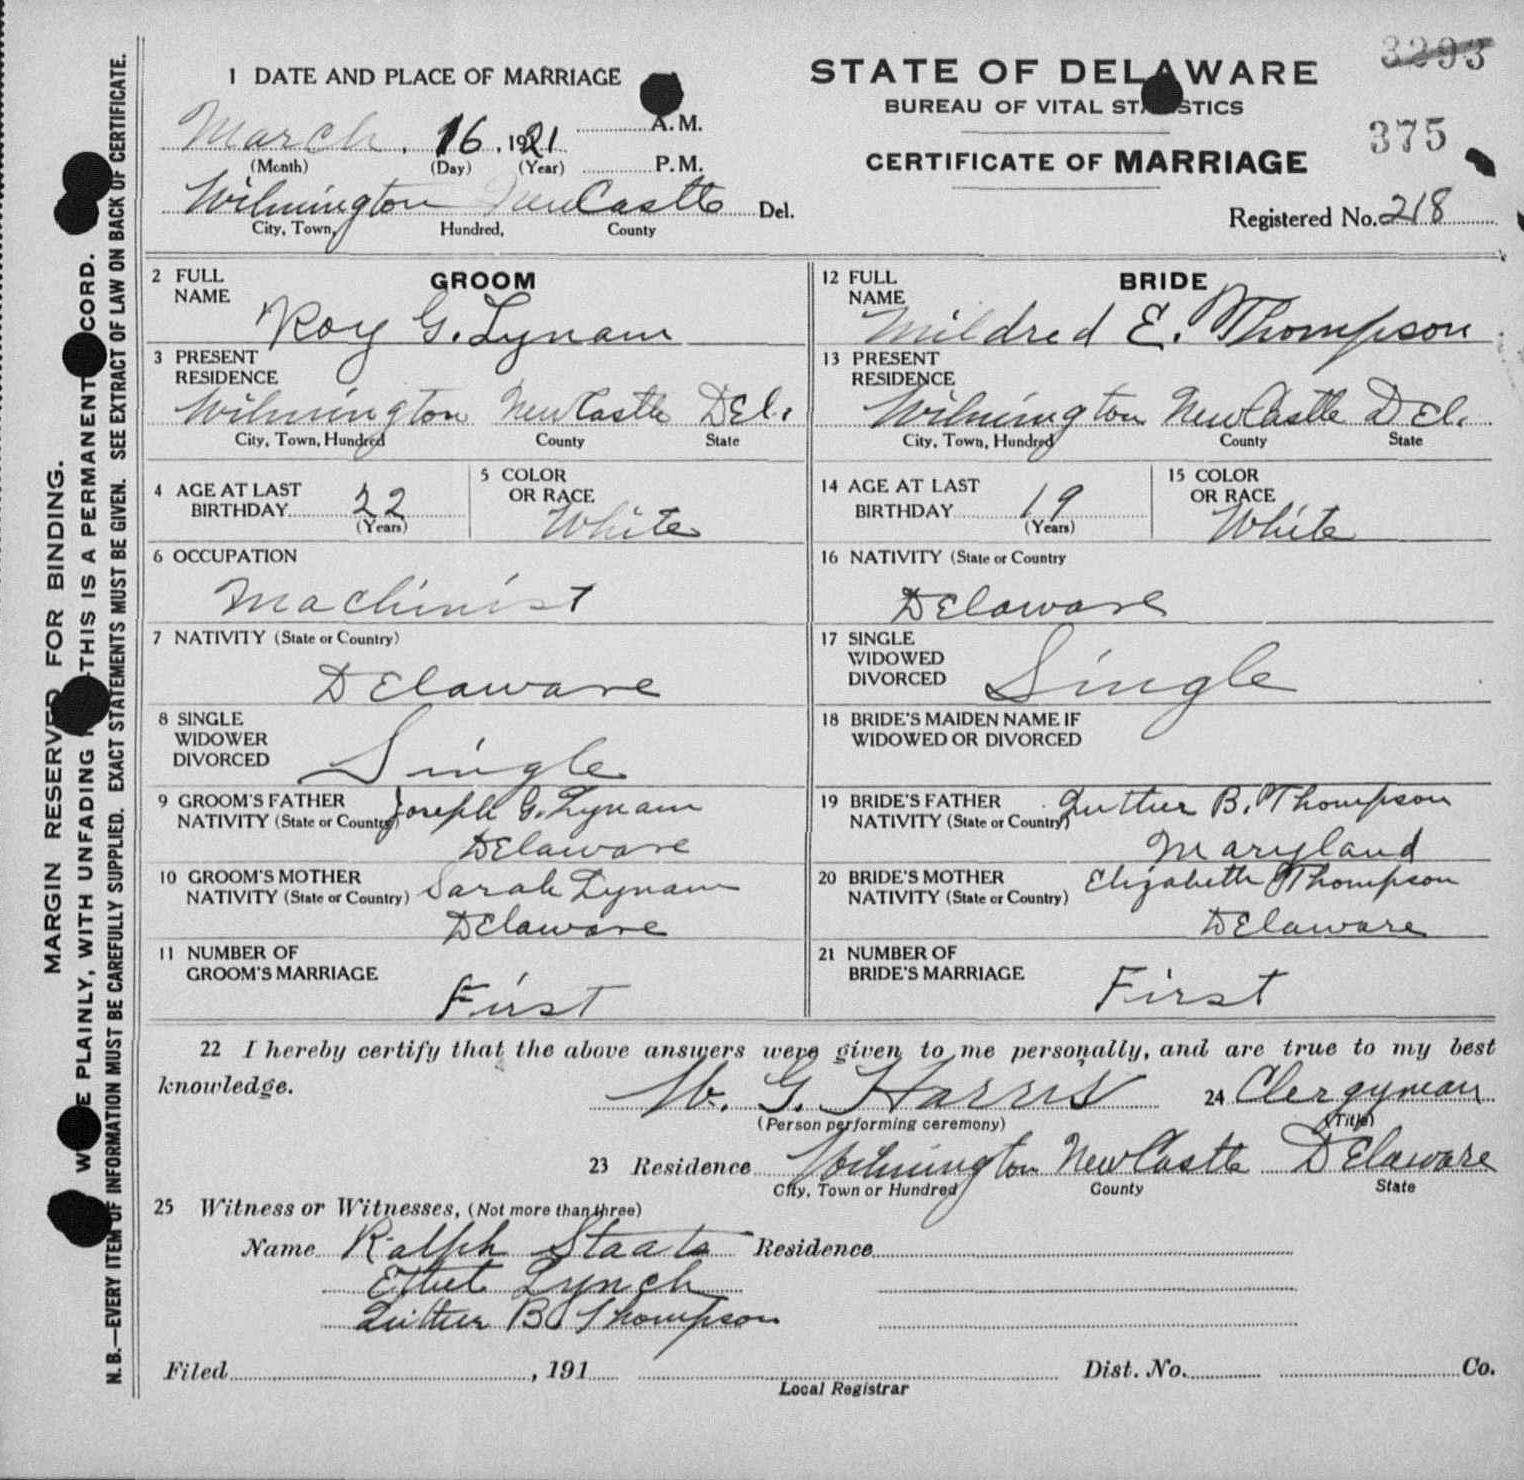 3293
1 DATE AND PLACE OF MARRIAGE
STATE OF DELAWARE
BUREAU OF VITAL STATISTICS
CERTIFICATE OF MARRIAGE
375
March 16, 1921 A.M.
(Month) (Day) (Year) P.M.
Wilmington New Castle Del.
City, Town, Hundred, County
Registered No. 218
2 FULL NAME GROOM
Roy G. Lynam
12 FULL NAME BRIDE
Mildred E. Thompson
3 PRESENT RESIDENCE
Wilmington New Castle Del.
City, Town, Hundred County State
13 PRESENT RESIDENCE
Wilmington New Castle Del.
City, Town, Hundred County State
4 AGE AT LAST BIRTHDAY 22 (Years)
5 COLOR OR RACE White
14 AGE AT LAST BIRTHDAY 19 (Years)
15 COLOR OR RACE White
6 OCCUPATION
Machinist
16 NATIVITY (State or Country
Delaware
7 NATIVITY (State or Country)
Delaware
17 SINGLE WIDOWED DIVORCED Single
8 SINGLE WIDOWER DIVORCED Single
18 BRIDE'S MAIDEN NAME IF WIDOWED OR DIVORCED
9 GROOM'S FATHER Joseph G. Lynam
NATIVITY (State or Country) Delaware
19 BRIDE'S FATHER Luther B. Thompson
NATIVITY (State or Country) Maryland
10 GROOM'S MOTHER Sarah Lynam
NATIVITY (State or Country) Delaware
20 BRIDE'S MOTHER Elizabeth Thompson
NATIVITY (State or Country) Delaware
11 NUMBER OF GROOM'S MARRIAGE First
21 NUMBER OF BRIDE'S MARRIAGE First
22 I hereby certify that the above answers were given to me personally, and are true to my best
knowledge.
W. G. Harris 24 Clergyman
(Person performing ceremony) (Title)
23 Residence Wilmington New Castle Delaware
City, Town or Hundred County State
25 Witness or Witnesses, (Not more than three)
Name Ralph Staats Residence
Ethel Lynch
Luther B Thompson
Filed , 191 Dist. No. Co.
Local Registrar
MARGIN RESERVED FOR BINDING.
PLAINLY, WITH UNFADING THIS IS A PERMANENT
N. B.—EVERY ITEM OF INFORMATION MUST BE CAREFULLY SUPPLIED. EXACT STATEMENTS MUST BE GIVEN. SEE EXTRACT OF LAW ON BACK OF CERTIFICATE.